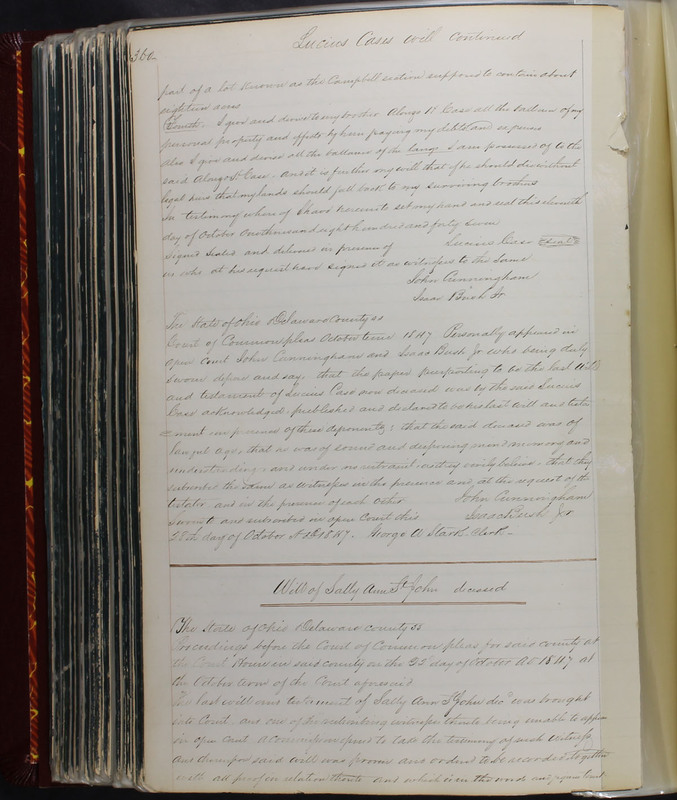 360
Lucius Cases will continued
part of a lot known as the Campbell section supposed to contain about
eighteen acres
Fourth. I give and devise to my brother Alonzo P. Case all the ballance of my
personal property and effects by him paying my debts and expenses
also I give and devise all the ballance of the lands I am possessed of to the
said Alonzo P. Case. And it is further my will that if he should die without
legal heirs that my lands should fall back to my surviving brothers
In testimony where of I have hereunto set my hand and seal this eleventh
day of October One thousand eight hundred and forty seven
Signed sealed and delivered in presence of Lucius Case (seal)
us who at his request have signed it as witnesses to the same
John Cunningham
Isaac Bush Jr.
The State of Ohio Delaware County ss
Court of Common pleas October term 1847 Personally appeared in
open court John Cunningham and Isaac Bush Jr who being duly
sworn depose and say, that the paper purporting to be the last Will
and testament of Lucius Case now deceased was by the said Lucius
Case acknowledged, published and declared to be his last will and testa
ment in presence of these deponents; that the said deceased was of
lawful age, that he was of sound and disposing mind memory and
understanding, and under no restraint as they verily believe, that they
subscribed the same as witnesses in the presence and at the request of the
testator and in the presence of each other John Cunningham
Sworn to and subscribed in open Court this Isaac Bush Jr
28th day of October AD 1847. George W Stark Clerk
Will of Sally Ann St John deceased
The State of Ohio Delaware County ss
Proceedings before the Court of Common pleas for said county at
the Court House in said county on the 22 day of October AD 1847 at
the October term of the Court aforesaid
The last will and testament of Sally Ann St John decd was brought
into Court and one of the subscribing witnesses thereto being unable to appear
in open Court a commission issued to take the testimony of such witness
and thereupon said will was proven and ordered to be recorded together
with all proof in relation thereto and which is in the words and figures